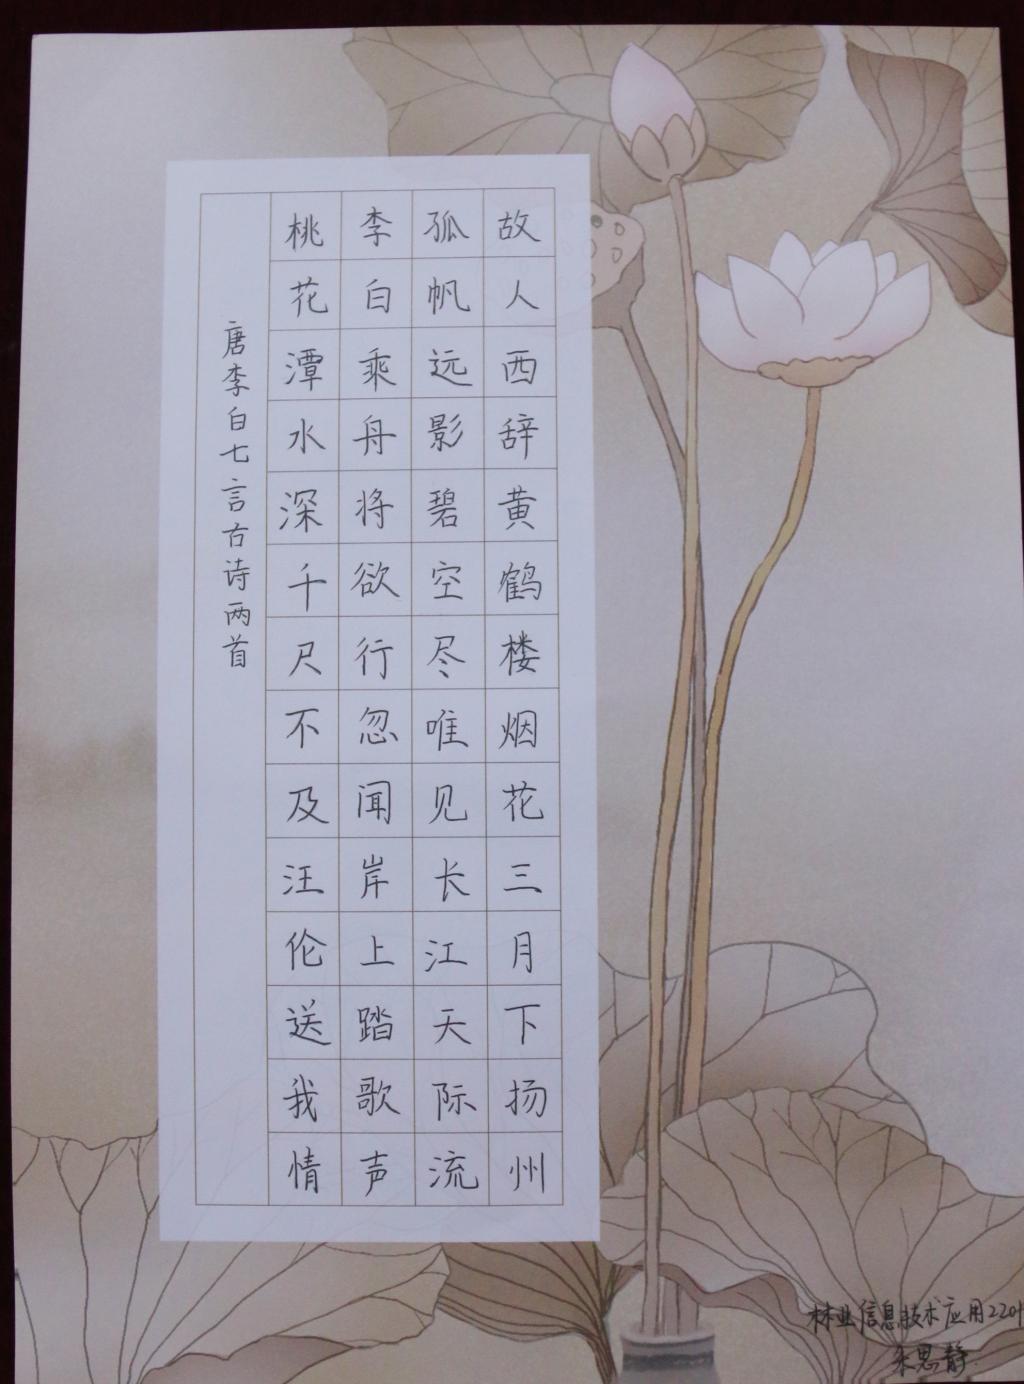 故人西辞黄鹤楼烟花三月下扬州
孤帆远影碧空尽唯见长江天际流
李白乘舟将欲行忽闻岸上踏歌声
桃花潭水深千尺不及汪伦送我情
唐李白七言古诗两首
林业信息技术应用2201
朱思静